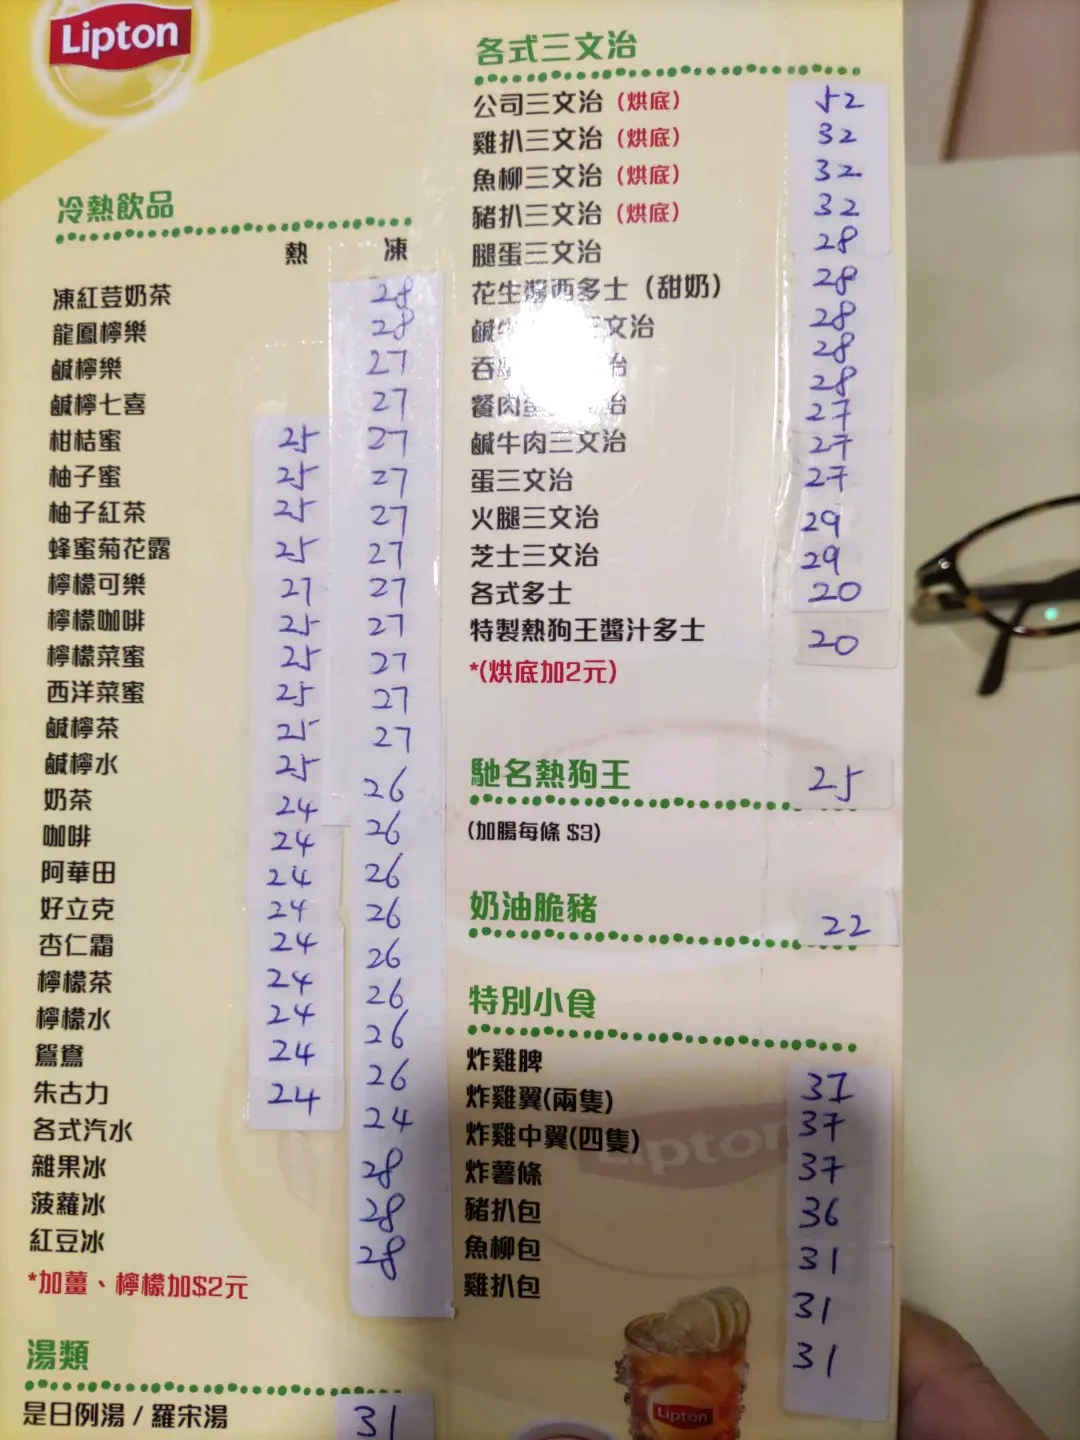 Lipton
冷熱飲品
熱 凍
凍紅荳奶茶 28
龍鳳檸樂 28
鹹檸樂 27
鹹檸七喜 27
柑桔蜜 25 27
柚子蜜 25 27
柚子紅茶 25 27
蜂蜜菊花露 25 27
檸檬可樂 27 27
檸檬咖啡 25 27
檸檬菜蜜 25 27
西洋菜蜜 25 27
鹹檸茶 25 27
鹹檸水 25 26
奶茶 24 26
咖啡 24 26
阿華田 24 26
好立克 24 26
杏仁霜 24 26
檸檬茶 24 26
檸檬水 24 26
鴛鴦 24
朱古力 24
各式汽水 24
雜果冰 28
菠蘿冰 28
紅豆冰 28
*加薑、檸檬加$2元
湯類
是日例湯 / 羅宋湯 31
各式三文治
公司三文治 (烘底) 52
雞扒三文治 (烘底) 32
魚柳三文治 (烘底) 32
豬扒三文治 (烘底) 32
腿蛋三文治 28
花生醬西多士 (甜奶) 28
鹹 文治 28
吞 治 28
餐肉 治 28
27
鹹牛肉三文治 27
蛋三文治 27
火腿三文治 29
芝士三文治 29
各式多士 20
特製熱狗王醬汁多士 20
*(烘底加2元)
馳名熱狗王 25
(加腸每條 $3)
奶油脆豬 22
特別小食
炸雞脾 37
炸雞翼(兩隻) 37
炸雞中翼(四隻) 37
炸薯條 36
豬扒包 31
魚柳包 31
雞扒包 31
Lipton
Lipton